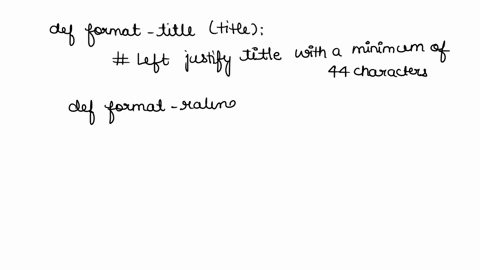 def format-title (title):
# Left justify title with a minimum of
44 characters
def format-